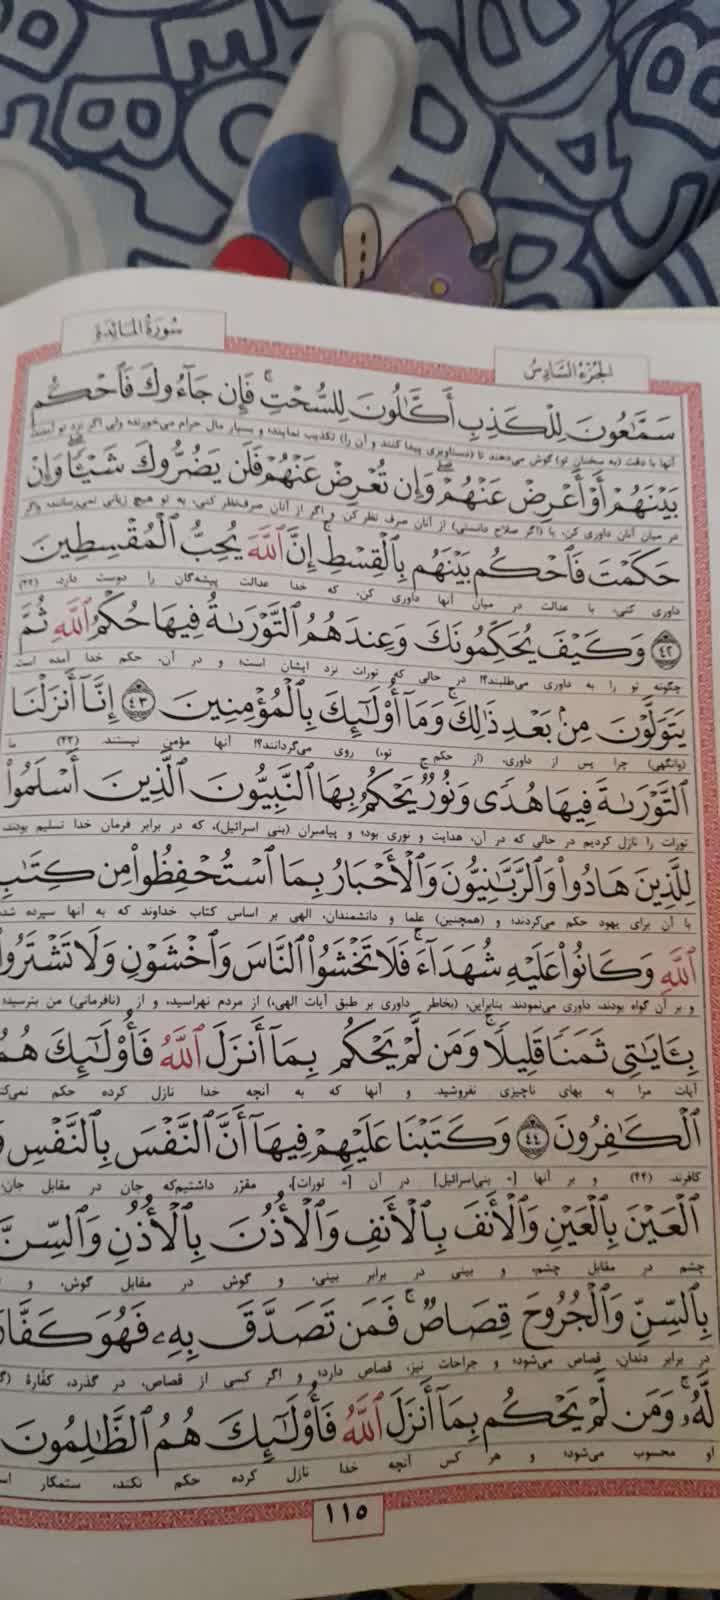 سُورَةُ المَائِدَةِ
الجُزءُ السَّادِسُ
سَمَّٰعُونَ لِلْكَذِبِ أَكَّٰلُونَ لِلسُّحْتِ ۚ فَإِن جَآءُوكَ فَٱحْكُم
آنها با دقت (به سخنان تو) گوش می‌دهند تا (دستاویزی پیدا کنند و آن را) تکذیب نمایند؛ و بسیار مال حرام می‌خورند؛ ولی اگر نزد تو آمدند،
بَيْنَهُمْ أَوْ أَعْرِضْ عَنْهُمْ ۖ وَإِن تُعْرِضْ عَنْهُمْ فَلَن يَضُرُّوكَ شَيْـًٔا ۖ وَإِنْ
در میان آنان داوری کن، یا (اگر صلاح دانستی) از آنان صرف نظر کن و اگر از آنان صرف‌نظر کنی، به تو هیچ زیانی نمی‌رسانند؛ واگر
حَكَمْتَ فَٱحْكُم بَيْنَهُم بِٱلْقِسْطِ ۚ إِنَّ ٱللَّهَ يُحِبُّ ٱلْمُقْسِطِينَ
داوری کنی، با عدالت در میان آنها داوری کن، که خدا عدالت پیشه‌گان را دوست دارد. (۴۲)
﴿٤٢﴾ وَكَيْفَ يُحَكِّمُونَكَ وَعِندَهُمُ ٱلتَّوْرَىٰةُ فِيهَا حُكْمُ ٱللَّهِ ثُمَّ
چگونه تو را به داوری می‌طلبند؟! در حالی که تورات نزد ایشان است؛ و در آن، حکم خدا آمده است.
يَتَوَلَّوْنَ مِنۢ بَعْدِ ذَٰلِكَ ۚ وَمَآ أُو۟لَٰٓئِكَ بِٱلْمُؤْمِنِينَ ﴿٤٣﴾ إِنَّآ أَنزَلْنَا
(وانگهی) چرا پس از داوری، (از حکم تو،) روی می‌گردانند؟! آنها مؤمن نیستند (۴۳) ما
ٱلتَّوْرَىٰةَ فِيهَا هُدًى وَنُورٌ ۚ يَحْكُمُ بِهَا ٱلنَّبِيُّونَ ٱلَّذِينَ أَسْلَمُوا۟
تورات را نازل کردیم در حالی که در آن، هدایت و نوری بود؛ و پیامبران (بنی اسرائیل)، که در برابر فرمان خدا تسلیم بودند،
لِلَّذِينَ هَادُوا۟ وَٱلرَّبَّٰنِيُّونَ وَٱلْأَحْبَارُ بِمَا ٱسْتُحْفِظُوا۟ مِن كِتَٰبِ
با آن برای یهود حکم می‌کردند؛ و (همچنین) علما و دانشمندان، الهی بر اساس کتاب خداوند که به آنها سپرده شده
ٱللَّهِ وَكَانُوا۟ عَلَيْهِ شُهَدَآءَ ۚ فَلَا تَخْشَوُا۟ ٱلنَّاسَ وَٱخْشَوْنِ وَلَا تَشْتَرُوا۟
و بر آن گواه بودند، داوری می‌نمودند. بنابراین، (بخاطر داوری بر طبق آیات الهی،) از مردم نهراسید، و از (نافرمانی) من بترسید؛
بِـَٔايَٰتِى ثَمَنًا قَلِيلًا ۚ وَمَن لَّمْ يَحْكُم بِمَآ أَنزَلَ ٱللَّهُ فَأُو۟لَٰٓئِكَ هُمُ
آیات مرا به بهای ناچیزی نفروشید و آنها که به آنچه خدا نازل کرده حکم
ٱلْكَٰفِرُونَ ﴿٤٤﴾ وَكَتَبْنَا عَلَيْهِمْ فِيهَآ أَنَّ ٱلنَّفْسَ بِٱلنَّفْسِ
کافرند. (۴۴) و بر آنها [= بنی‌اسرائیل] در آن [= تورات]، مقرّر داشتیم‌که جان در مقابل جان،
ٱلْعَيْنَ بِٱلْعَيْنِ وَٱلْأَنفَ بِٱلْأَنفِ وَٱلْأُذُنَ بِٱلْأُذُنِ وَٱلسِّنَّ
چشم در مقابل چشم، و بینی در برابر بینی، و گوش در مقابل گوش، و
بِٱلسِّنِّ وَٱلْجُرُوحَ قِصَاصٌ ۚ فَمَن تَصَدَّقَ بِهِۦ فَهُوَ
در برابر دندان، قصاص می‌شود؛ و جراحات نیز، قصاص دارد؛ و اگر کسی از قصاص، در گذرد، کفّارهٔ
لَّهُۥ ۚ وَمَن لَّمْ يَحْكُم بِمَآ أَنزَلَ ٱللَّهُ فَأُو۟لَٰٓئِكَ هُمُ ٱلظَّٰلِمُونَ
او محسوب می‌شود؛ و هر کس آنچه خدا نازل کرده حکم نکند، ستمکار
١١٥